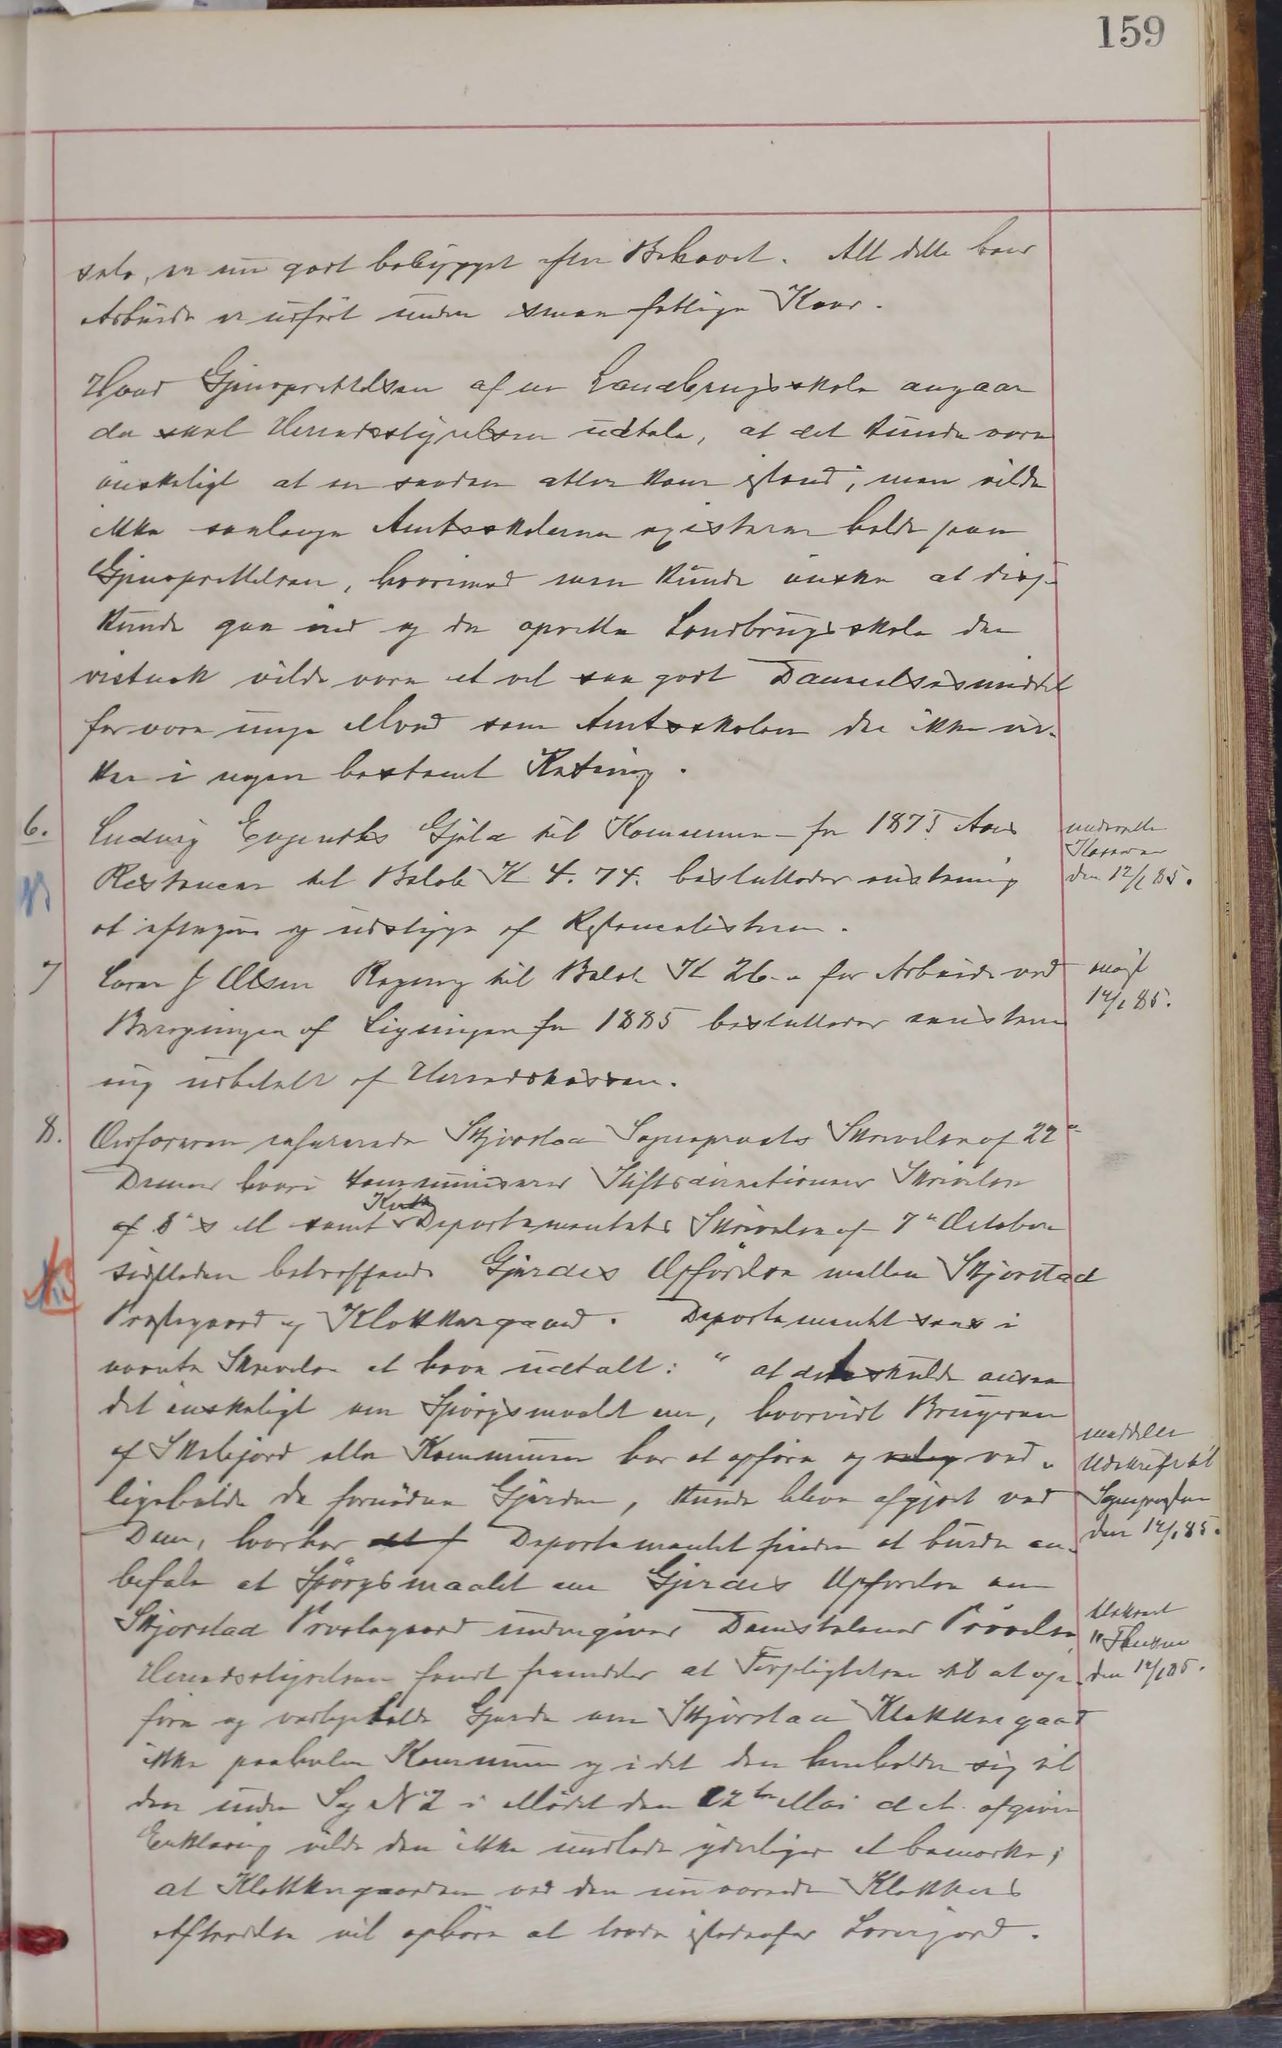 159
selv, er nu godt bebygget efter Behovet. Alt dette haarde
Arbeide er udført under smaa fattige Kaar.
Hvad Gjenoprettelsen af en Landbrugsskole angaar
da skal Herredsstyrelsen udtale, at det kunde være
ønskeligt at en saadan atter kom istand; men vilde
ikke saalænge Amtsskolerne existerer holde paa
Gjenoprettelsen, hvorimod man kunde ønske at disse
kunde gaa ind og da oprette Landbrugsskole der
vistnok vilde være et vel saa godt Dannelsesmiddel
for vore unge Mænd som Amtsskolen der ikke vir-
ker i nogen bestemt Retning.
6. Ludvig Gjæld til Kommunen for 1875 Aars
Restancer til Beløb K 4.74. besluttedes enstemmig
at eftergive og udstryge af Restancelisten.
7 Lærer J Olsen Regning til Beløb K 26 for Arbeide ved
Beregningen af Ligningen for 1885 besluttedes enstem
mig udbetalt af Herredskassen.
8. Ordføreren refererede Skjerstad Sogneprests Skrivelse af 22de
hvori kommuniceres Stiftsdirectionens Skrivelse
af 8de s M samt Kirke
Departementets Skrivelse af 7de October
sidstleden betreffende Gjerdes Opførelse mellem Skjerstad
Prestegaard og Klokkergaard. Departementet sees i
nævnte Skrivelse at have udtalt: " at det skulde ansee
det ønskeligt om Spørgsmaalet om, hvorvidt Brugeren
af Skolejord eller Kommunen bør at opføre og ved
ligeholde de fornødne Gjerder, kunde blive afgjort ved
Dom, hvorfor Departementet finder at burde an-
befale at Spørgsmaalet om Gjerdes Opførelse om
Skjerstad Prestegaard undergives Domstolenes Prøvelse
Herredsstyrelsen fandt fremdeles at Forpligtelsen til at op-
føre og vedligeholde Gjerde om Skjerstad Klokkergaard
ikke paahviler Kommunen og idet den henholder sig til
den under Sag N 2 i Mødet den 12te Mai d. A. afgivne
Erklæring vilde den ikke undlade yderligere at bemærke,
at Klokkergaarden ved den nuværende Klokkers
Aftrædelse vil ophøre at træde istedenfor Lærerjord.
underrettet
Kasserer
den 12/1 85.
12/1 85.
meddelt
Udskrift til
Sognepresten
den 12/1 85.
den 12/1 85.